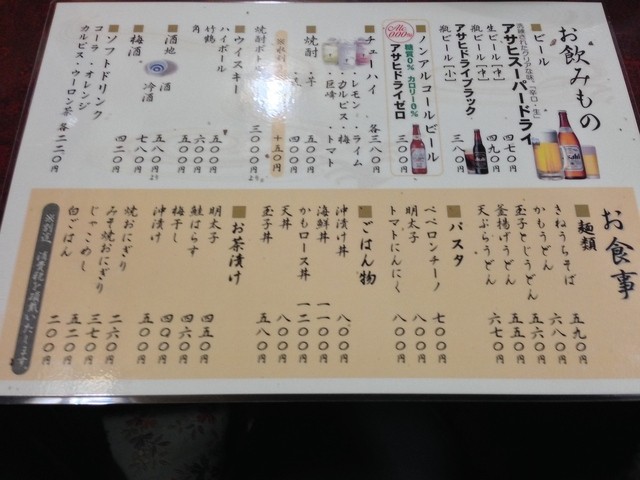 お飲みもの
ビール
アサヒスーパードライ
生ビール[中] 四七〇円
瓶ビール[中] 四九〇円
アサヒドライブラック
瓶ビール[小] 三八〇円
ノンアルコールビール
糖質0% カロリー0%
アサヒドライゼロ 三〇〇円
チューハイ 各三八〇円
・レモン・ライム
・カルピス・梅
・巨峰・トマト
焼酎
五〇〇円
十五〇円
焼酎ボトル 三〇〇〇円
ウイスキー
ハイボール 五〇〇円
竹鶴 六〇〇円
角 五〇〇円
酒地
冷酒 七八〇円
梅酒 四二〇円
ソフトドリンク
コーラ・オレンジ
カルピス・ウーロン茶 各二二〇円
お食事
麺類
きねうちそば 五九〇円
かもうどん 六八〇円
玉子とじうどん 五五〇円
釜揚げうどん 五五〇円
天ぷらうどん 六七〇円
パスタ
ペペロンチーノ 七〇〇円
明太子 八〇〇円
トマトにんにく 八〇〇円
ごはん物
沖漬け丼 八〇〇円
海鮮丼 一一〇〇円
かもロース丼 一二〇〇円
天丼 八〇〇円
玉子丼 五八〇円
お茶漬け
明太子 四五〇円
鮭はらす 四〇〇円
梅干し 四六〇円
沖漬け 五〇〇円
焼おにぎり 二六〇円
みそ焼おにぎり 三七〇円
じゃこめし 五二〇円
白ごはん 二〇〇円
※別途、消費税を頂戴いたします。